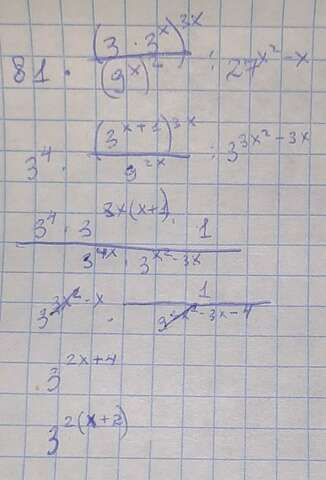 81 · (3 · 3^x)^{3x} / (9^x)^2 : 27^{x^2 - x}
3^4 · (3^{x+1})^{3x} / 9^{2x} : 3^{3x^2 - 3x}
3^4 · 3^{3x(x+1)} · 1 / 3^{4x} · 3^{x^2 - 3x}
3^{3x^2 - x} · 1 / 3^{x^2 - 3x - 4}
3^{2x+4}
3^{2(x+2)}